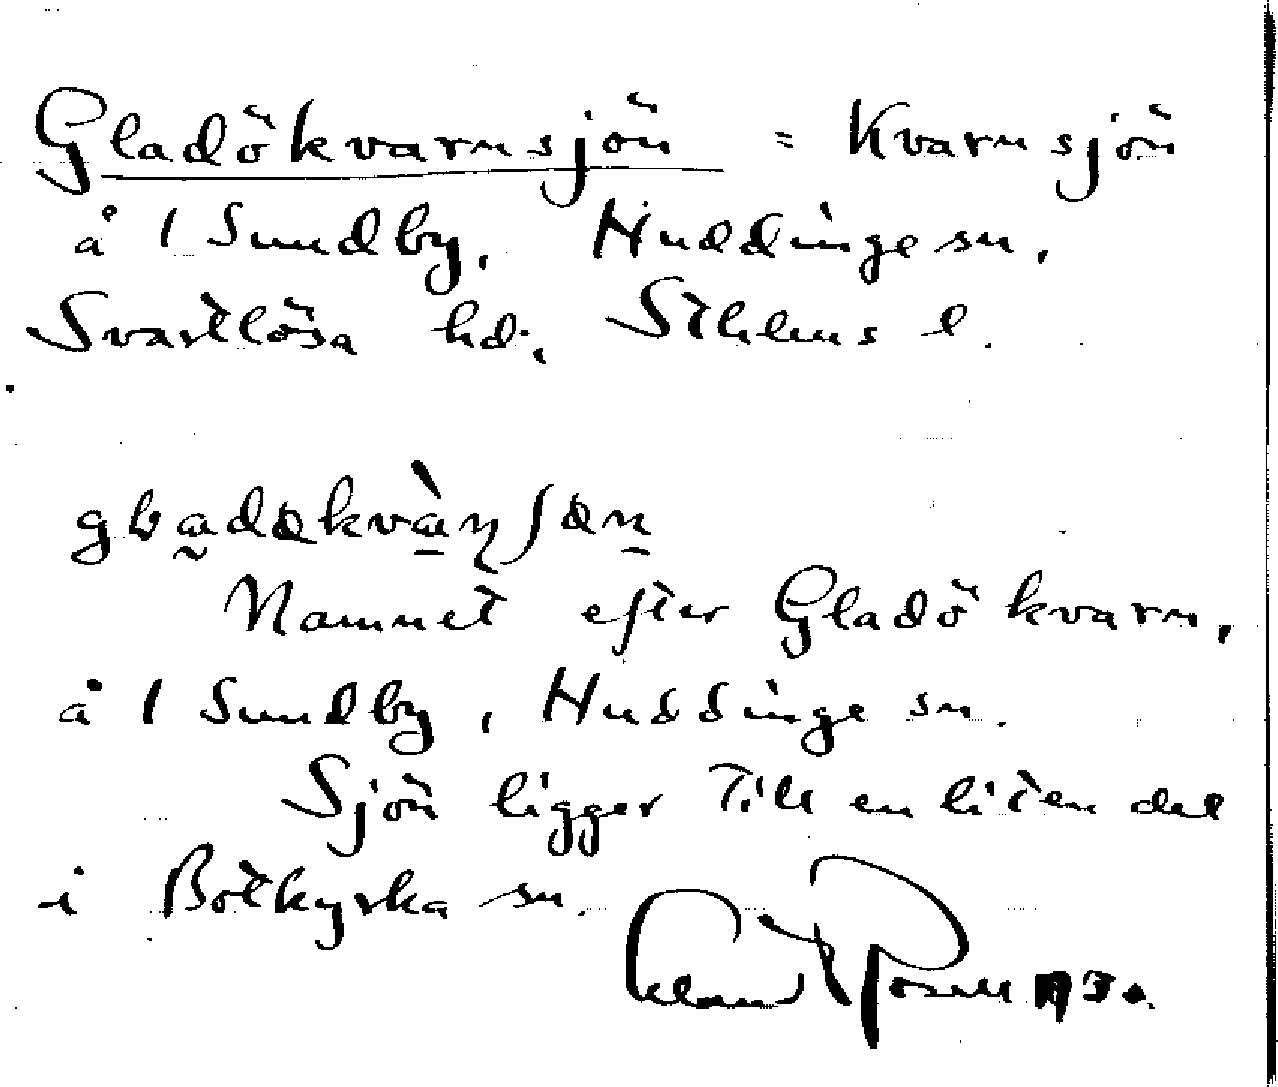 Gladökvarnsjön = Kvarnsjön
å 1 Sundby, Huddinge sn,
Svartlösa hd, Sthlms l.
Namnet efter Gladö kvarn,
å 1 Sundby, Huddinge sn.
Sjön ligger till en liten del
i Botkyrka sn.
1930